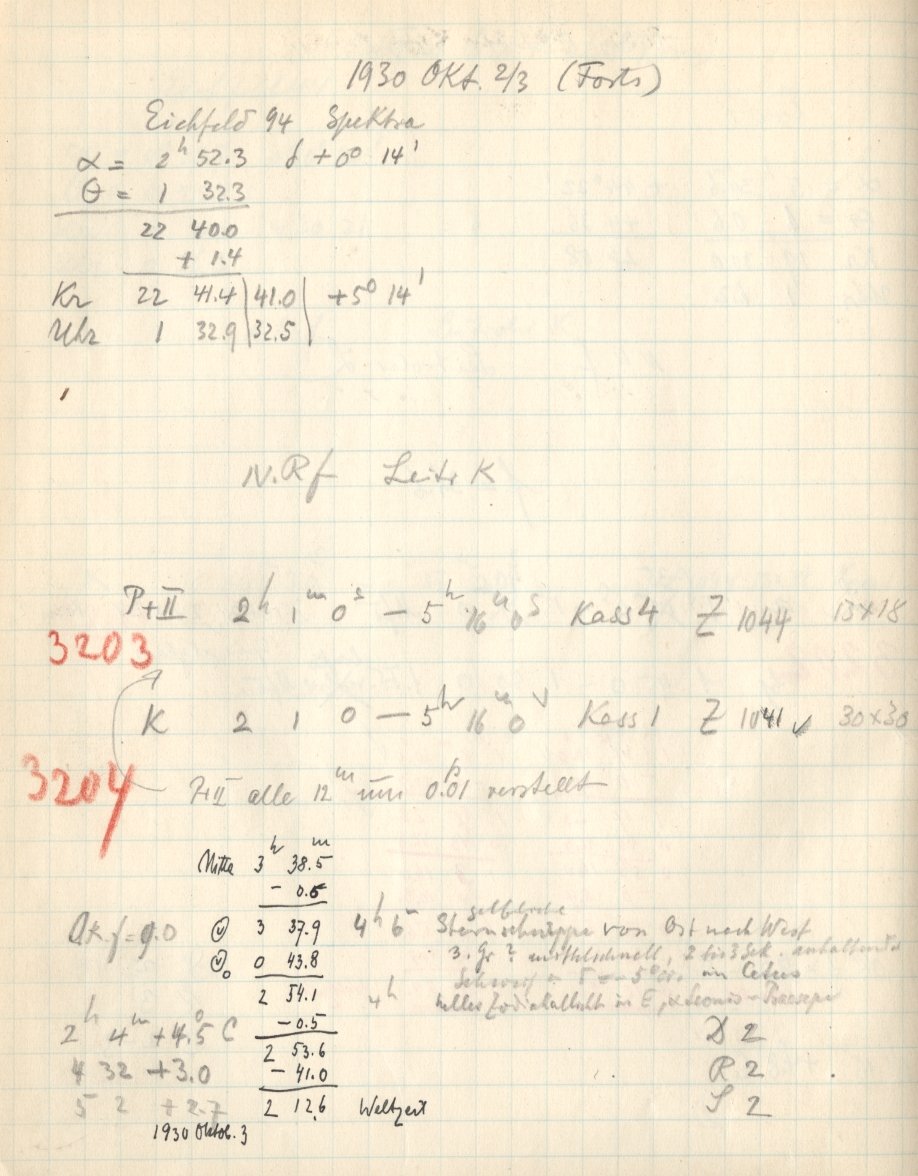 1930 Okt. 2/3 (Forts)
Eichfeld 94 Spektra
α = 2h 52.3 δ +0° 14'
θ = 1 32.3
22 40.0
+ 1.4
Kr 22 41.4 | 41.0 | +5° 14'
Uhr 1 32.9 | 32.5 |
N.Rf Leitr K
P+II 2h 1m 0s — 5h 16m 0s Kass 4 Z 1044 13×18
3203
K 2 1 0 — 5h 16m 0 Kass 1 Z 1041 ✓ 30×30
3204
P+II alle 12m um 0.01 verstellt
Mitte 3h 38.5m
- 0.5
gelbliche
3 37.9 4h 6 Sternschnuppe von Ost nach West
0 43.8 3. Gr? mittelschnell, 2 bis 3 Sek. anhaltend
Schweif im Cetus
2 54.1 4h helles Zodiakallicht in E, α Leonis - Praesepe
2h 4m +4.5° C - 0.5 D 2
2 53.6
4 32 +3.0 - 41.0 R 2
5 2 +2.7 2 12.6 Weltzeit S 2
1930 Oktob. 3